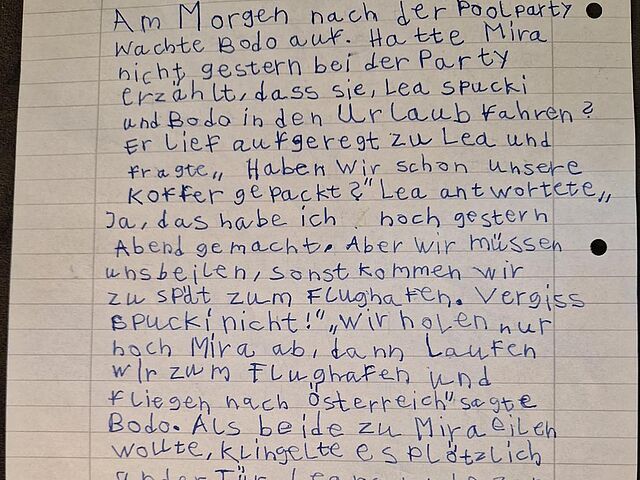 Am Morgen nach der Poolparty
wachte Bodo auf. Hatte Mira
nicht gestern bei der Party
erzählt, dass sie, Lea spucki
und Bodo in den Urlaub fahren?
Er lief aufgeregt zu Lea und
fragte„ Haben wir schon unsere
Koffer gepackt?" Lea antwortete„
Ja, das habe ich noch gestern
Abend gemacht. Aber wir müssen
unsbeilen, sonst kommen wir
zu spät zum Flughafen. Vergiss
spucki nicht!"„Wir holen nur
noch Mira ab, dann Laufen
wir zum Flughafen und
fliegen nach Österreich" sagte
Bodo. Als beide zu Mira eilen
wollte, klingelte es plötzlich
an der Tür